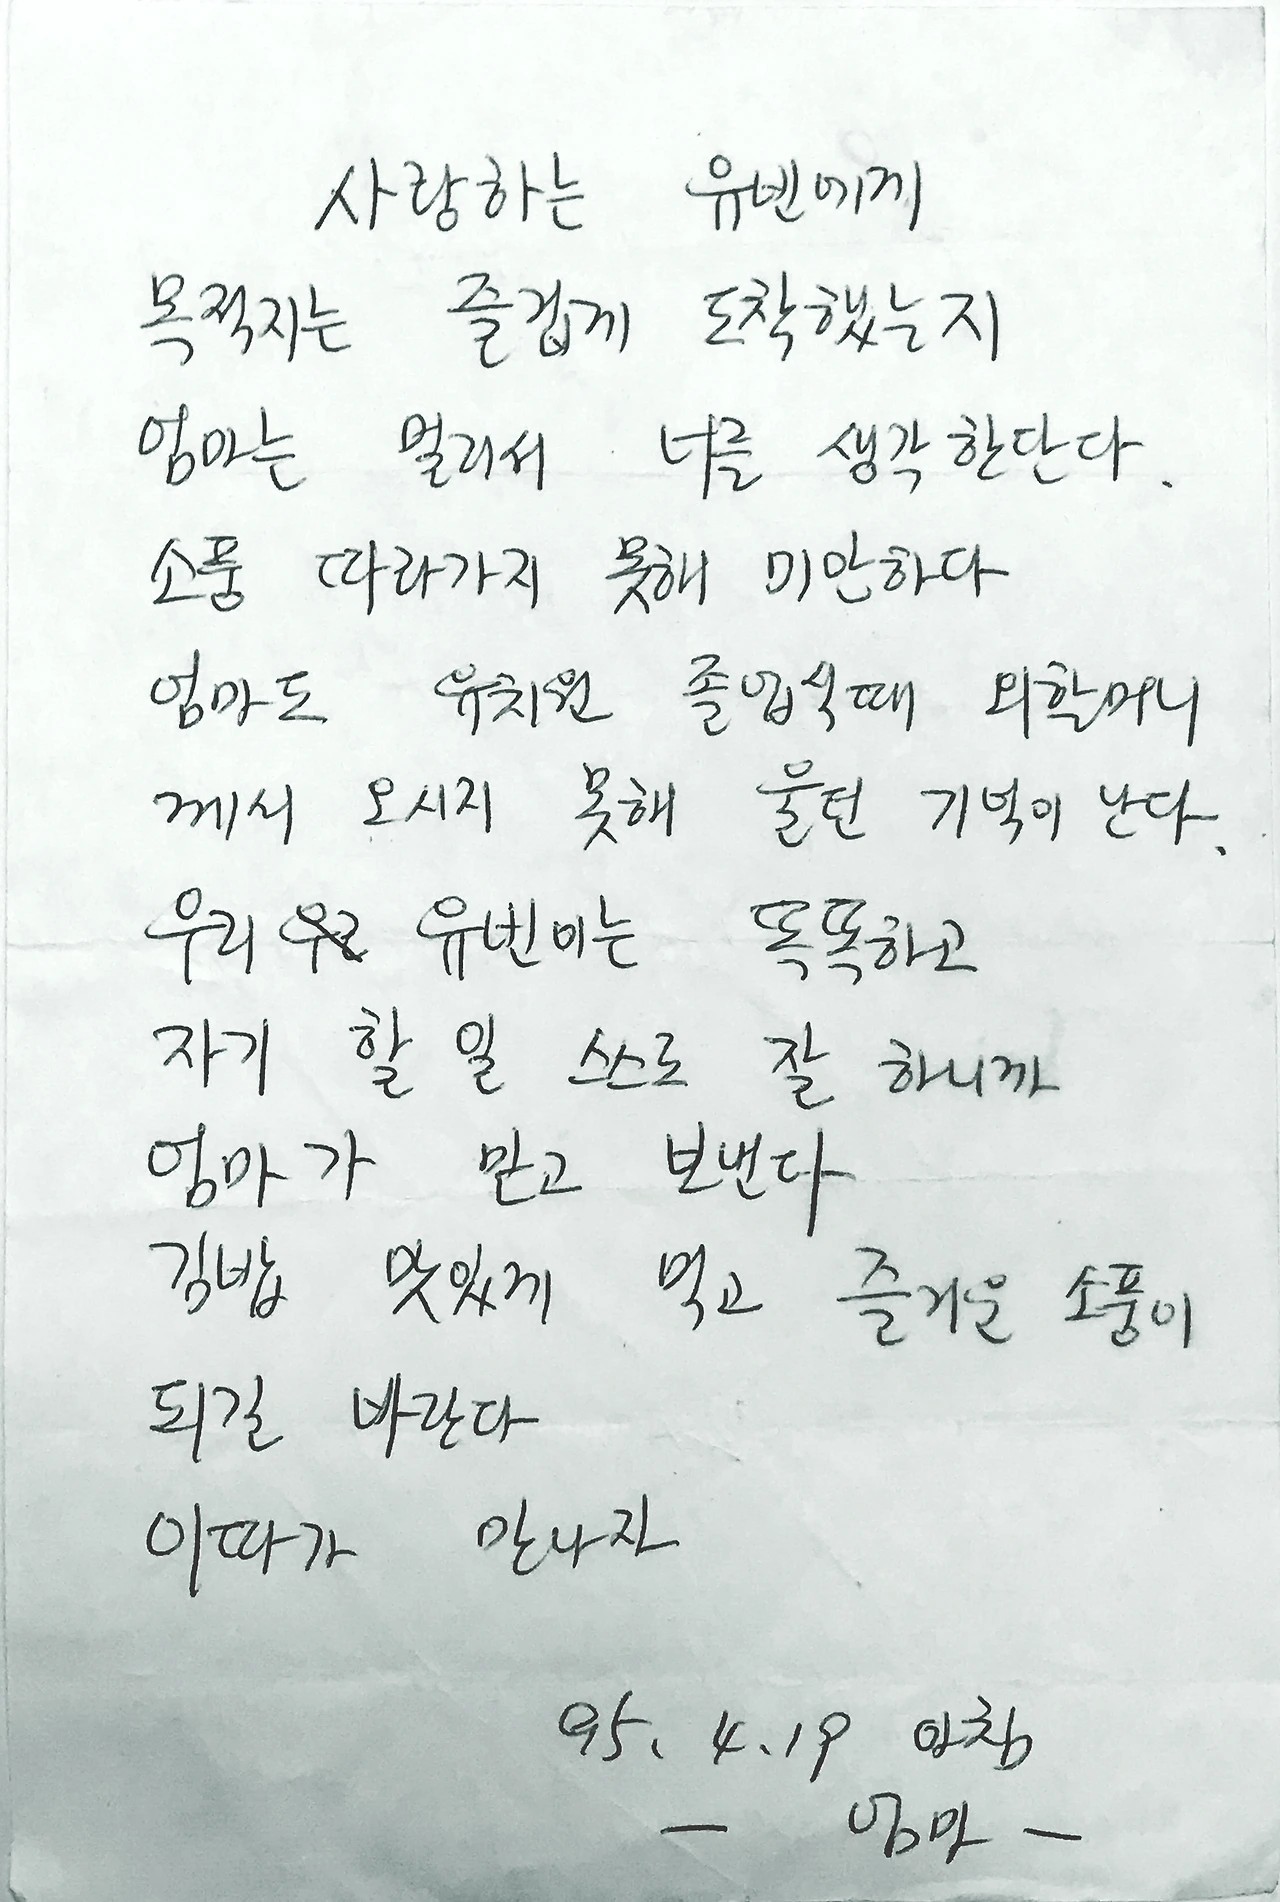 사랑하는 유빈에게
목적지는 즐겁게 도착했는지
엄마는 멀리서 너를 생각한단다.
소풍 따라가지 못해 미안하다
엄마도 유치원 졸업식때 외할머니
께서 오시지 못해 울던 기억이 난다.
우리 유빈이는 똑똑하고
자기 할 일 스스로 잘 하니까
엄마가 믿고 보낸다
김밥 맛있게 먹고 즐거운 소풍이
되길 바란다
이따가 만나자
95. 4. 19 아침
— 엄마 —